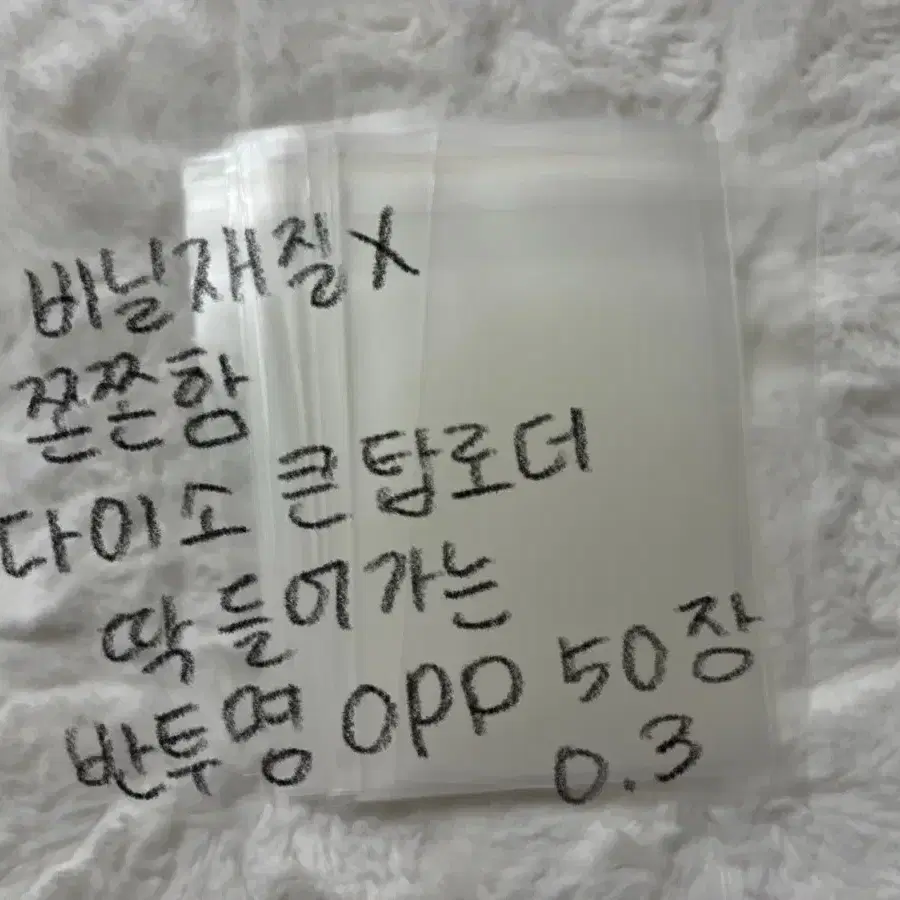 비닐재질X
쫀쫀함
다이소 큰탑로더
딱 들어가는
반투명 OPP 50장
0.3